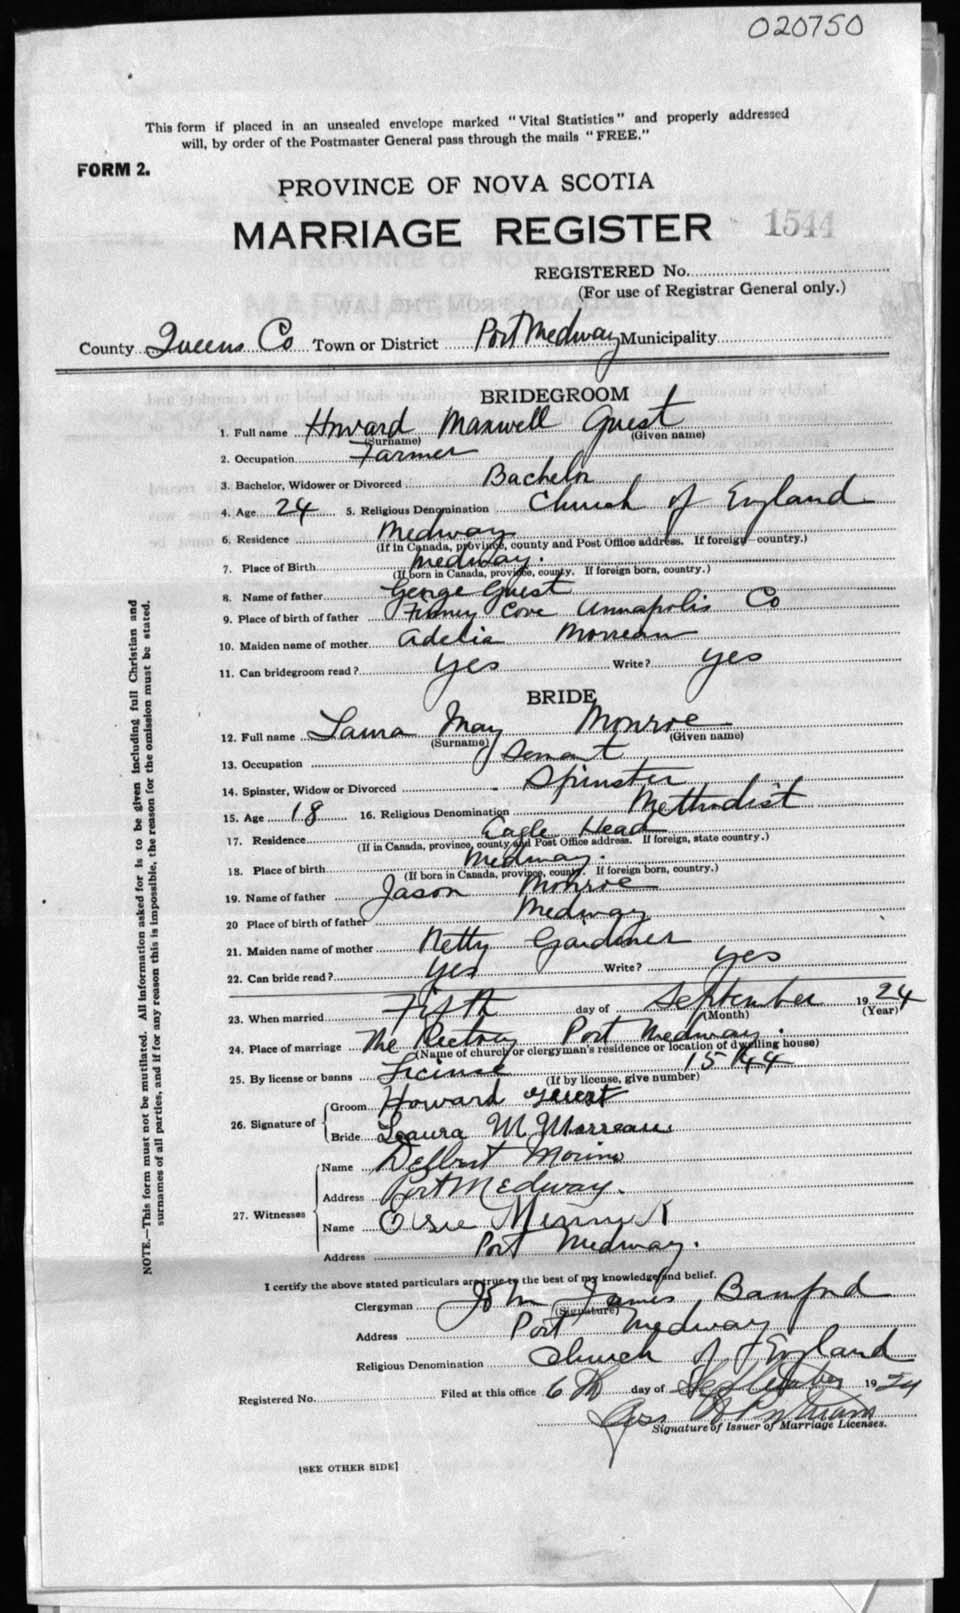 020750
This form if placed in an unsealed envelope marked "Vital Statistics" and properly addressed
will, by order of the Postmaster General pass through the mails "FREE."
FORM 2.
PROVINCE OF NOVA SCOTIA
MARRIAGE REGISTER 1544
REGISTERED No.
(For use of Registrar General only.)
County Queens Co Town or District Port Medway Municipality
BRIDEGROOM
1. Full name Howard Maxwell Guest
(Surname) (Given name)
2. Occupation Farmer
3. Bachelor, Widower or Divorced Bachelor
4. Age 24 5. Religious Denomination Church of England
6. Residence Medway
(If in Canada, province, county and Post Office address. If foreign country.)
7. Place of Birth Medway.
(If born in Canada, province, county. If foreign born, country.)
8. Name of father George Guest
9. Place of birth of father Cove Annapolis Co
10. Maiden name of mother Adelia Morreau
11. Can bridegroom read? yes Write? yes
BRIDE
12. Full name Laura May Monroe
(Surname) (Given name)
13. Occupation Servant
14. Spinster, Widow or Divorced Spinster
15. Age 18 16. Religious Denomination Methodist
17. Residence Eagle Head
(If in Canada, province, county and Post Office address. If foreign, state country.)
18. Place of birth Medway.
(If born in Canada, province, county. If foreign born, country.)
19. Name of father Jason Monroe
20 Place of birth of father Medway
21. Maiden name of mother Netty Gardiner
22. Can bride read? yes Write? yes
23. When married Fifth day of September 1924
(Month) (Year)
24. Place of marriage The Rectory Port Medway.
(Name of church or clergyman's residence or location of dwelling house)
25. By license or banns License 1544
(If by license, give number)
26. Signature of
Groom Howard Guest
Bride Laura M. Morreau
27. Witnesses
Name Delbert
Address Port Medway.
Name
Address Port Medway.
I certify the above stated particulars are true to the best of my knowledge and belief.
Clergyman John James Banford
(Signature)
Address Port Medway
Religious Denomination Church of England
Registered No. Filed at this office 6th day of September 1924
Signature of Issuer of Marriage Licenses.
[SEE OTHER SIDE]
NOTE.—This form must not be mutilated. All information asked for is to be given including full Christian and
surnames of all parties, and if for any reason this is impossible, the reason for the omission must be stated.